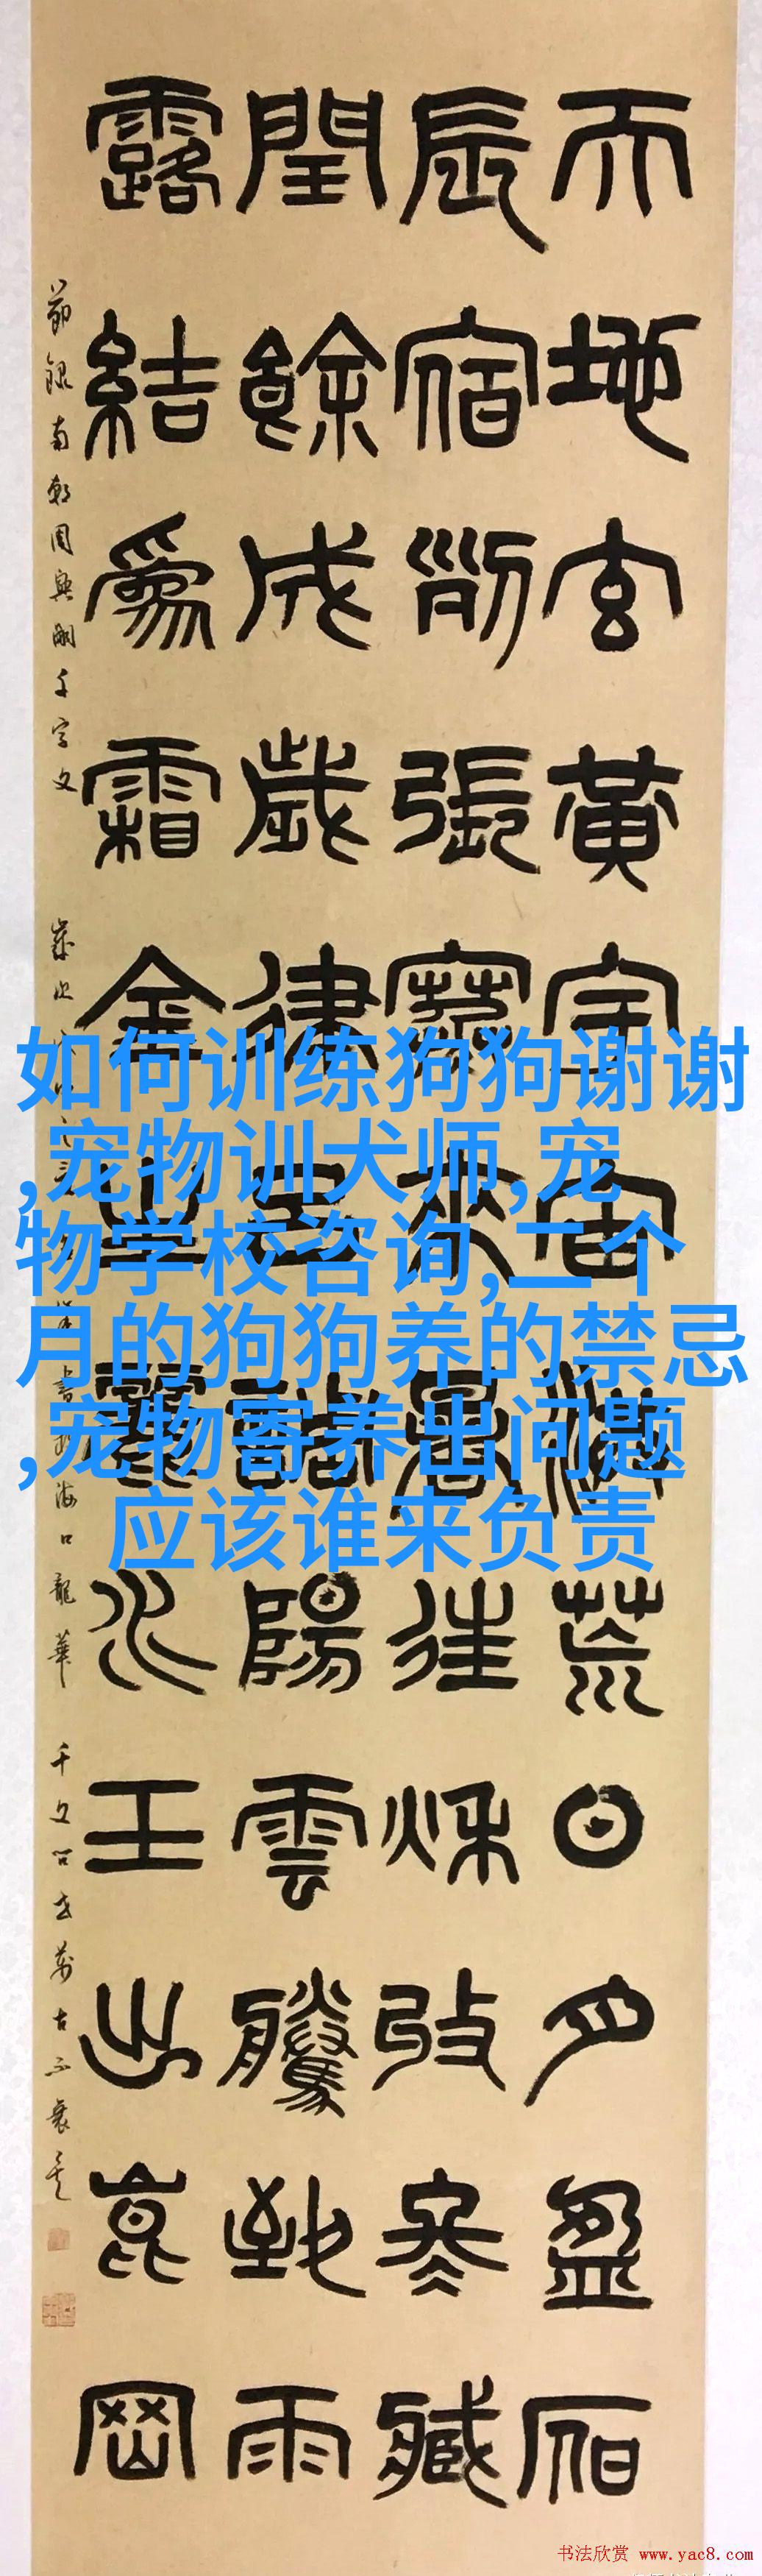 天地玄黃宇宙洪荒日月盈昃
辰宿列張寒來暑往秋收冬藏
閏餘成歲律呂調陽雲騰致雨
露結為霜金生麗水玉出崑岡
節錄南朝周興嗣千字文
如何训练狗狗谢谢
,宠物训犬师,宠
物学校咨询,二个
月的狗狗养的禁忌
,宠物寄养出问题
应该谁来负责
书法欣赏 www.yac8.com